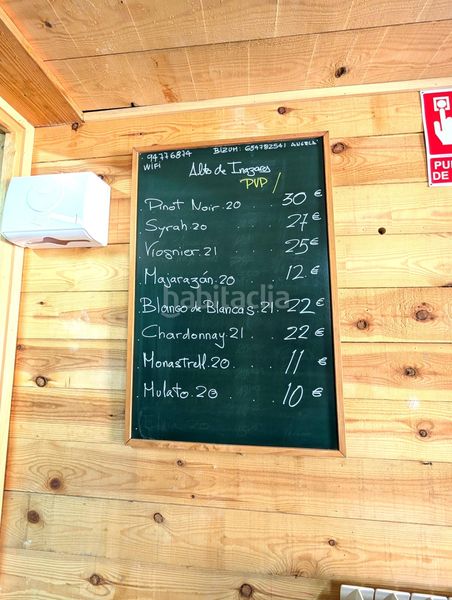 94776874 BIZUM: 654782541 ANGELA
WIFI
Alto de Inazares
PVP /
Pinot Noir.20 . . 30 €
Syrah.20 . . . 27 €
Viognier.21 . . . 25 €
Majarazán.20 . . 12 €
Blanco de Blancas.21. 22 €
Chardonnay.21 . . 22 €
Monastrell.20 . . 11 €
Mulato.20 . . . 10 €
habitaclia
PU
DE